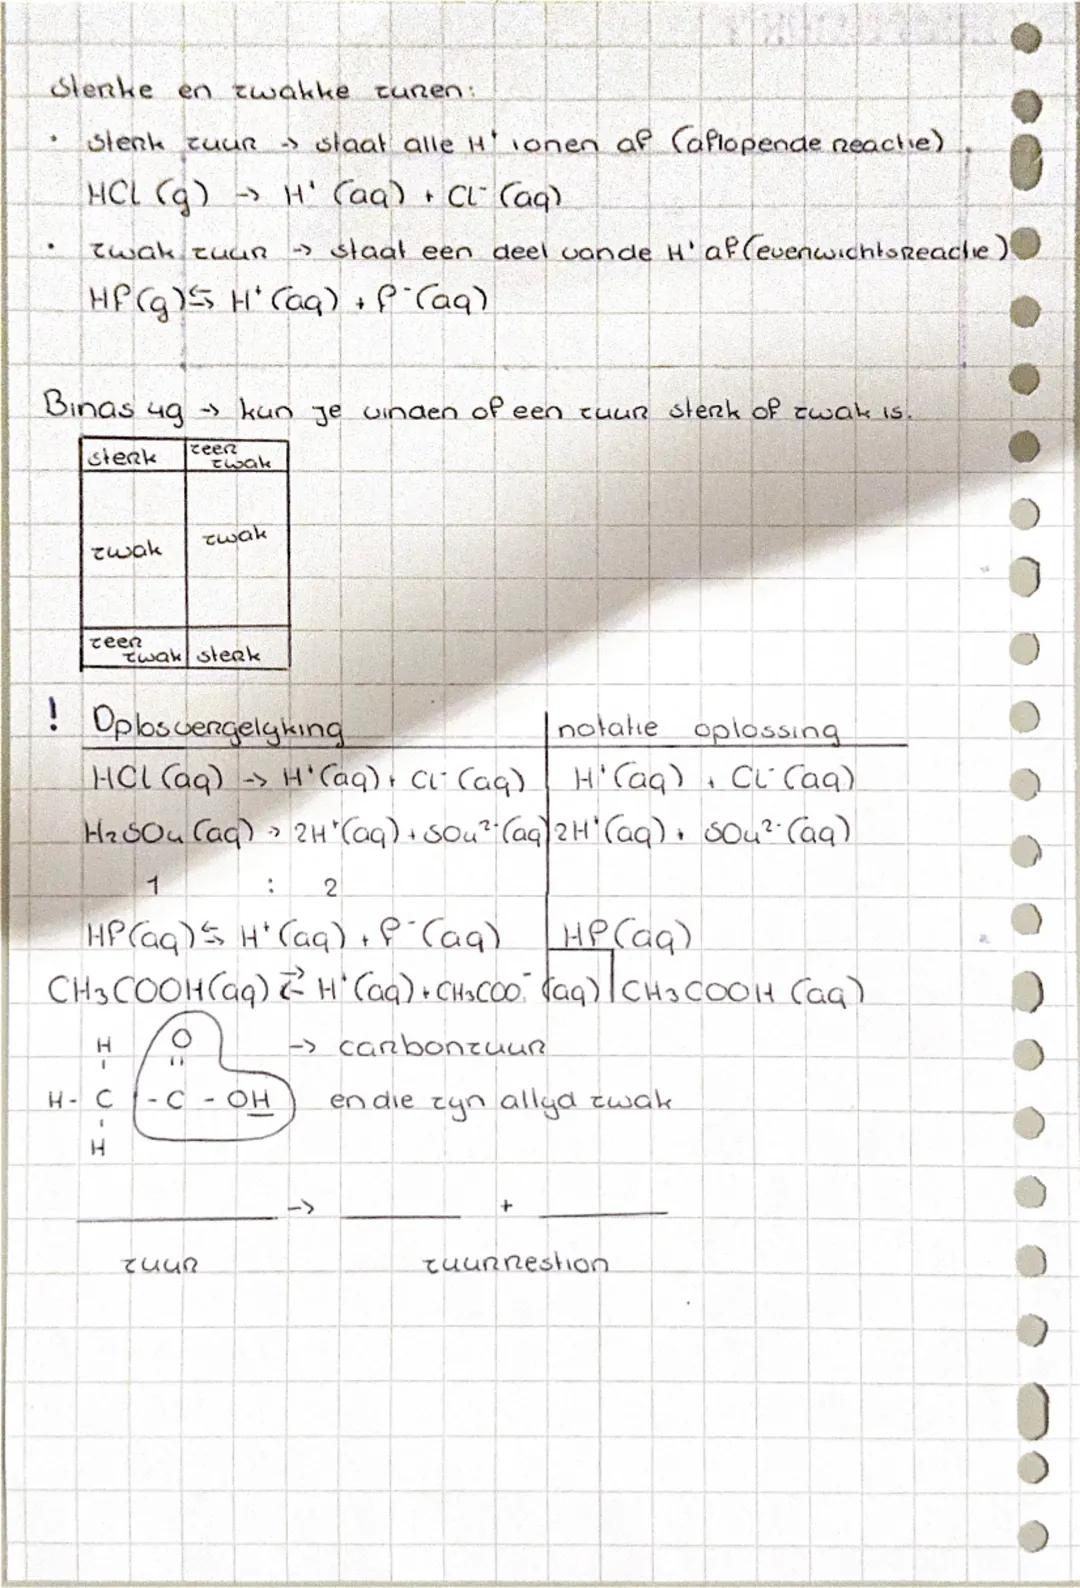 Sterke en zwakke zuren:
• sterk zuur -> staat alle H⁺ ionen af (aflopende reactie)
HCl (g) -> H⁺ (aq) + Cl⁻ (aq)
• zwak zuur -> staat een deel van de H⁺ af (evenwichtsreactie)
HF(g) ⇆ H⁺ (aq) + F⁻ (aq)
Binas 49 -> kun je vinden of een zuur sterk of zwak is.
sterk zeer zwak
zwak zwak
zeer zwak sterk
! Oplosvergelyking notatie oplossing
HCl (aq) -> H⁺(aq) + Cl⁻ (aq) H⁺(aq) + Cl⁻ (aq)
H₂SO₄ (aq) -> 2H⁺(aq) + SO₄²⁻(aq) 2H⁺(aq) + SO₄²⁻(aq)
1 : 2
HF(aq) ⇆ H⁺(aq) + F⁻(aq) HF(aq)
CH₃COOH(aq) ⇄ H⁺(aq) + CH₃COO⁻ (aq) CH₃COOH (aq)
H O -> carbonzuur
H - C - C - OH en die zyn allyd zwak
H
-> +
zuur zuurrestion